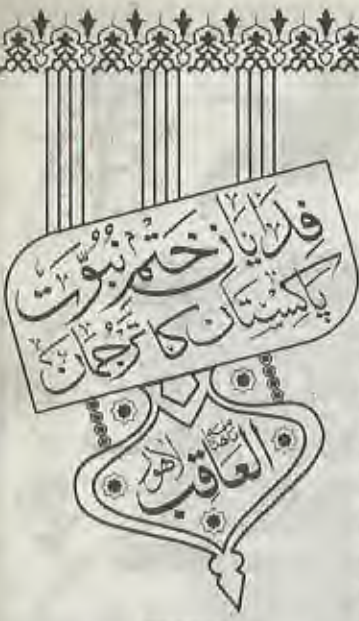 فدایانِ ختمِ نبوّت
پاکستان کا ترجمان
ماہنامہ العاقب لاہور